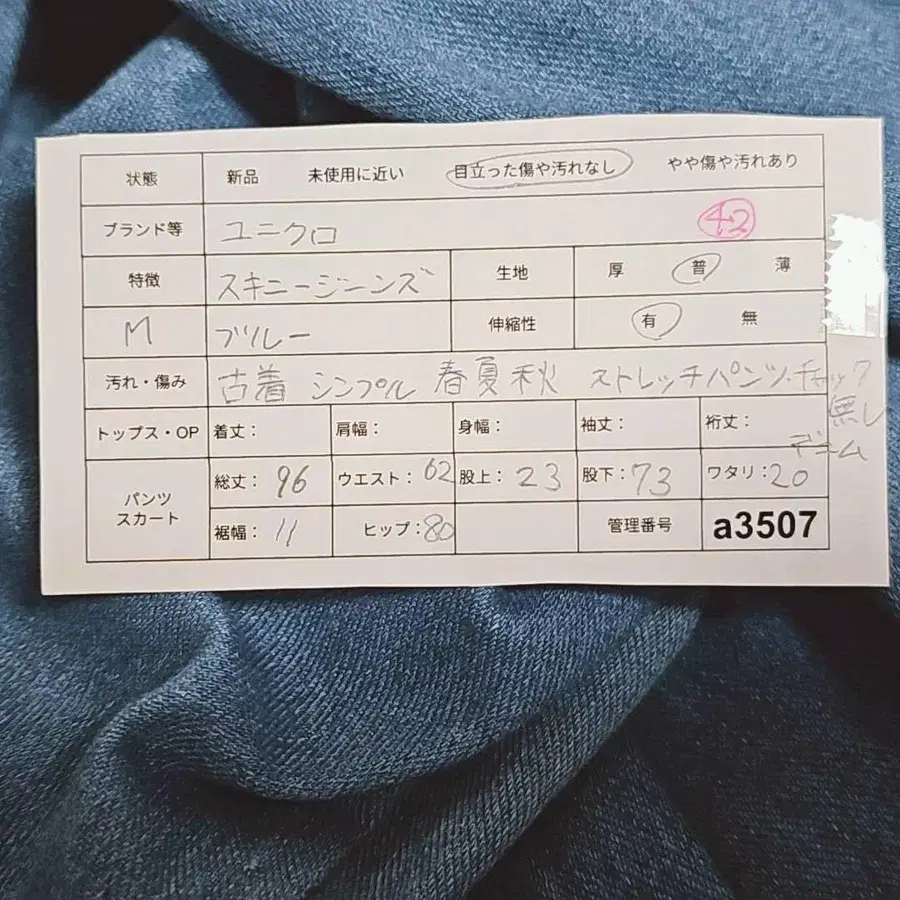 状態 新品 未使用に近い 目立った傷や汚れなし やや傷や汚れあり
ブランド等 ユニクロ 42
特徴 スキニージーンズ 生地 厚 普 薄
M ブルー 伸縮性 有 無
汚れ・傷み 古着 シンプル 春夏秋 ストレッチパンツ・チャック
無し
デニム
トップス・OP 着丈: 肩幅: 身幅: 袖丈: 裄丈:
パンツ
スカート
総丈: 96 ウエスト: 62 股上: 23 股下: 73 ワタリ: 20
裾幅: 11 ヒップ: 80 管理番号 a3507